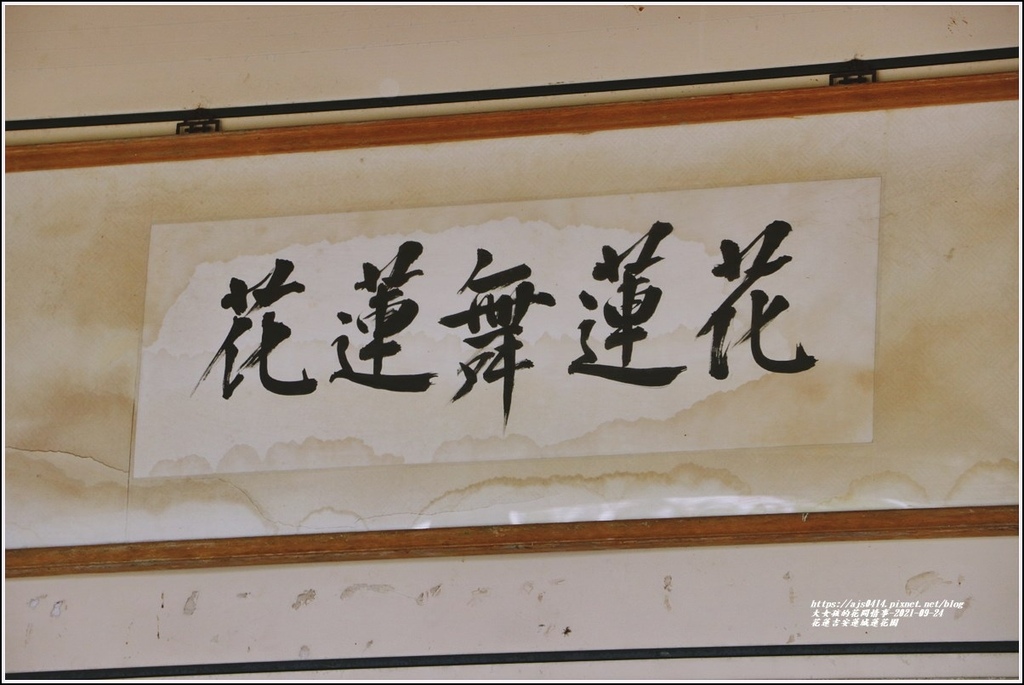 花蓮舞蓮花
https://ajs0414.pixnet.net/blog
大女孩的花間情事-2021-09-24
花蓮吉安蓮城蓮花園